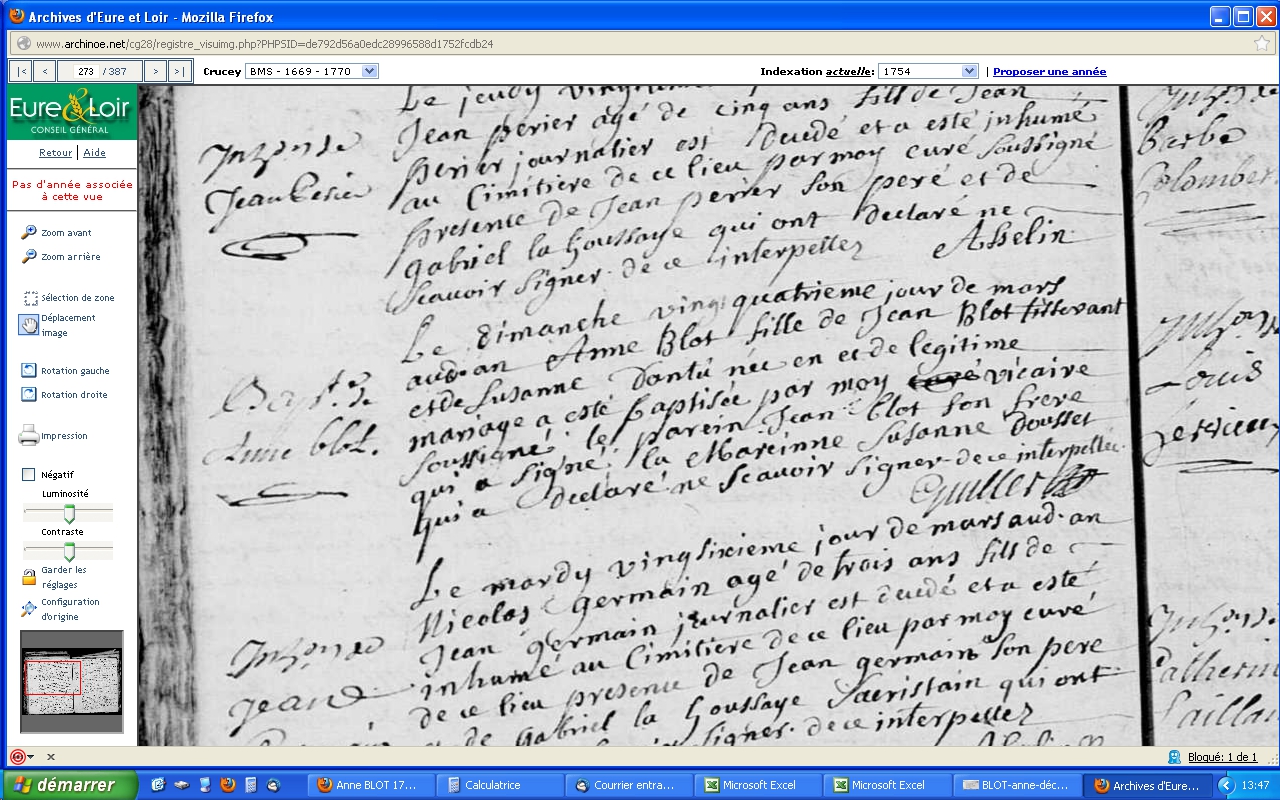 Archives d'Eure et Loir - Mozilla Firefox
www.archinoe.net/cg28/registre_visuimg.php?PHPSID=de792d56a0edc28996588d1752fcdb24
|< < 273 / 387 > >| Crucey BMS - 1669 - 1770 Indexation actuelle: 1754 | Proposer une année
Eure & Loir
CONSEIL GÉNÉRAL
Retour | Aide
Pas d'année associée
à cette vue
Zoom avant
Zoom arrière
Sélection de zone
Déplacement
image
Rotation gauche
Rotation droite
Impression
Négatif
Luminosité
Contraste
Garder les
réglages
Configuration
d'origine
Le jeudy
Jean perier agé de cinq ans fill de Jean
perier journalier est decedé et a esté inhumé
au Cimitiere de ce lieu par moy curé soussigné
presence de Jean perrier son peré et de
gabriel la houssaye qui ont declaré ne
scavoir signer de ce interpellez Asselin
Inhon de
Jean Perier
Le dimanche vingt quatrieme jour de mars
aud an Anne Blot fille de Jean Blot
et de Susanne Dantú née en et de legitime
mariage a esté baptisée par moy curé vicaire
soussigné le parein Jean blot son frere
qui a signé la Mareinne Susanne Dousset
qui a declaré ne scavoir signer de ce interpellée
Bapt. d.
Anne blot.
Le mardy vingsixieme jour de mars aud. an
Nicolas germain agé de trois ans fill de
Jean germain journalier est decedé et a esté
inhumé au Cimitiere de ce lieu par moy curé
de ce lieu presence de Jean germain son pere
et de Gabriel la houssaye Sacristain qui ont
signer de ce interpellez
Inhon de
Jean
Barbe
Colombe
Louis
Bloqué: 1 de 1
démarrer
Anne BLOT 17...
Calculatrice
Courrier entra...
Microsoft Excel
Microsoft Excel
BLOT-anne-déc...
Archives d'Eure...
13:47